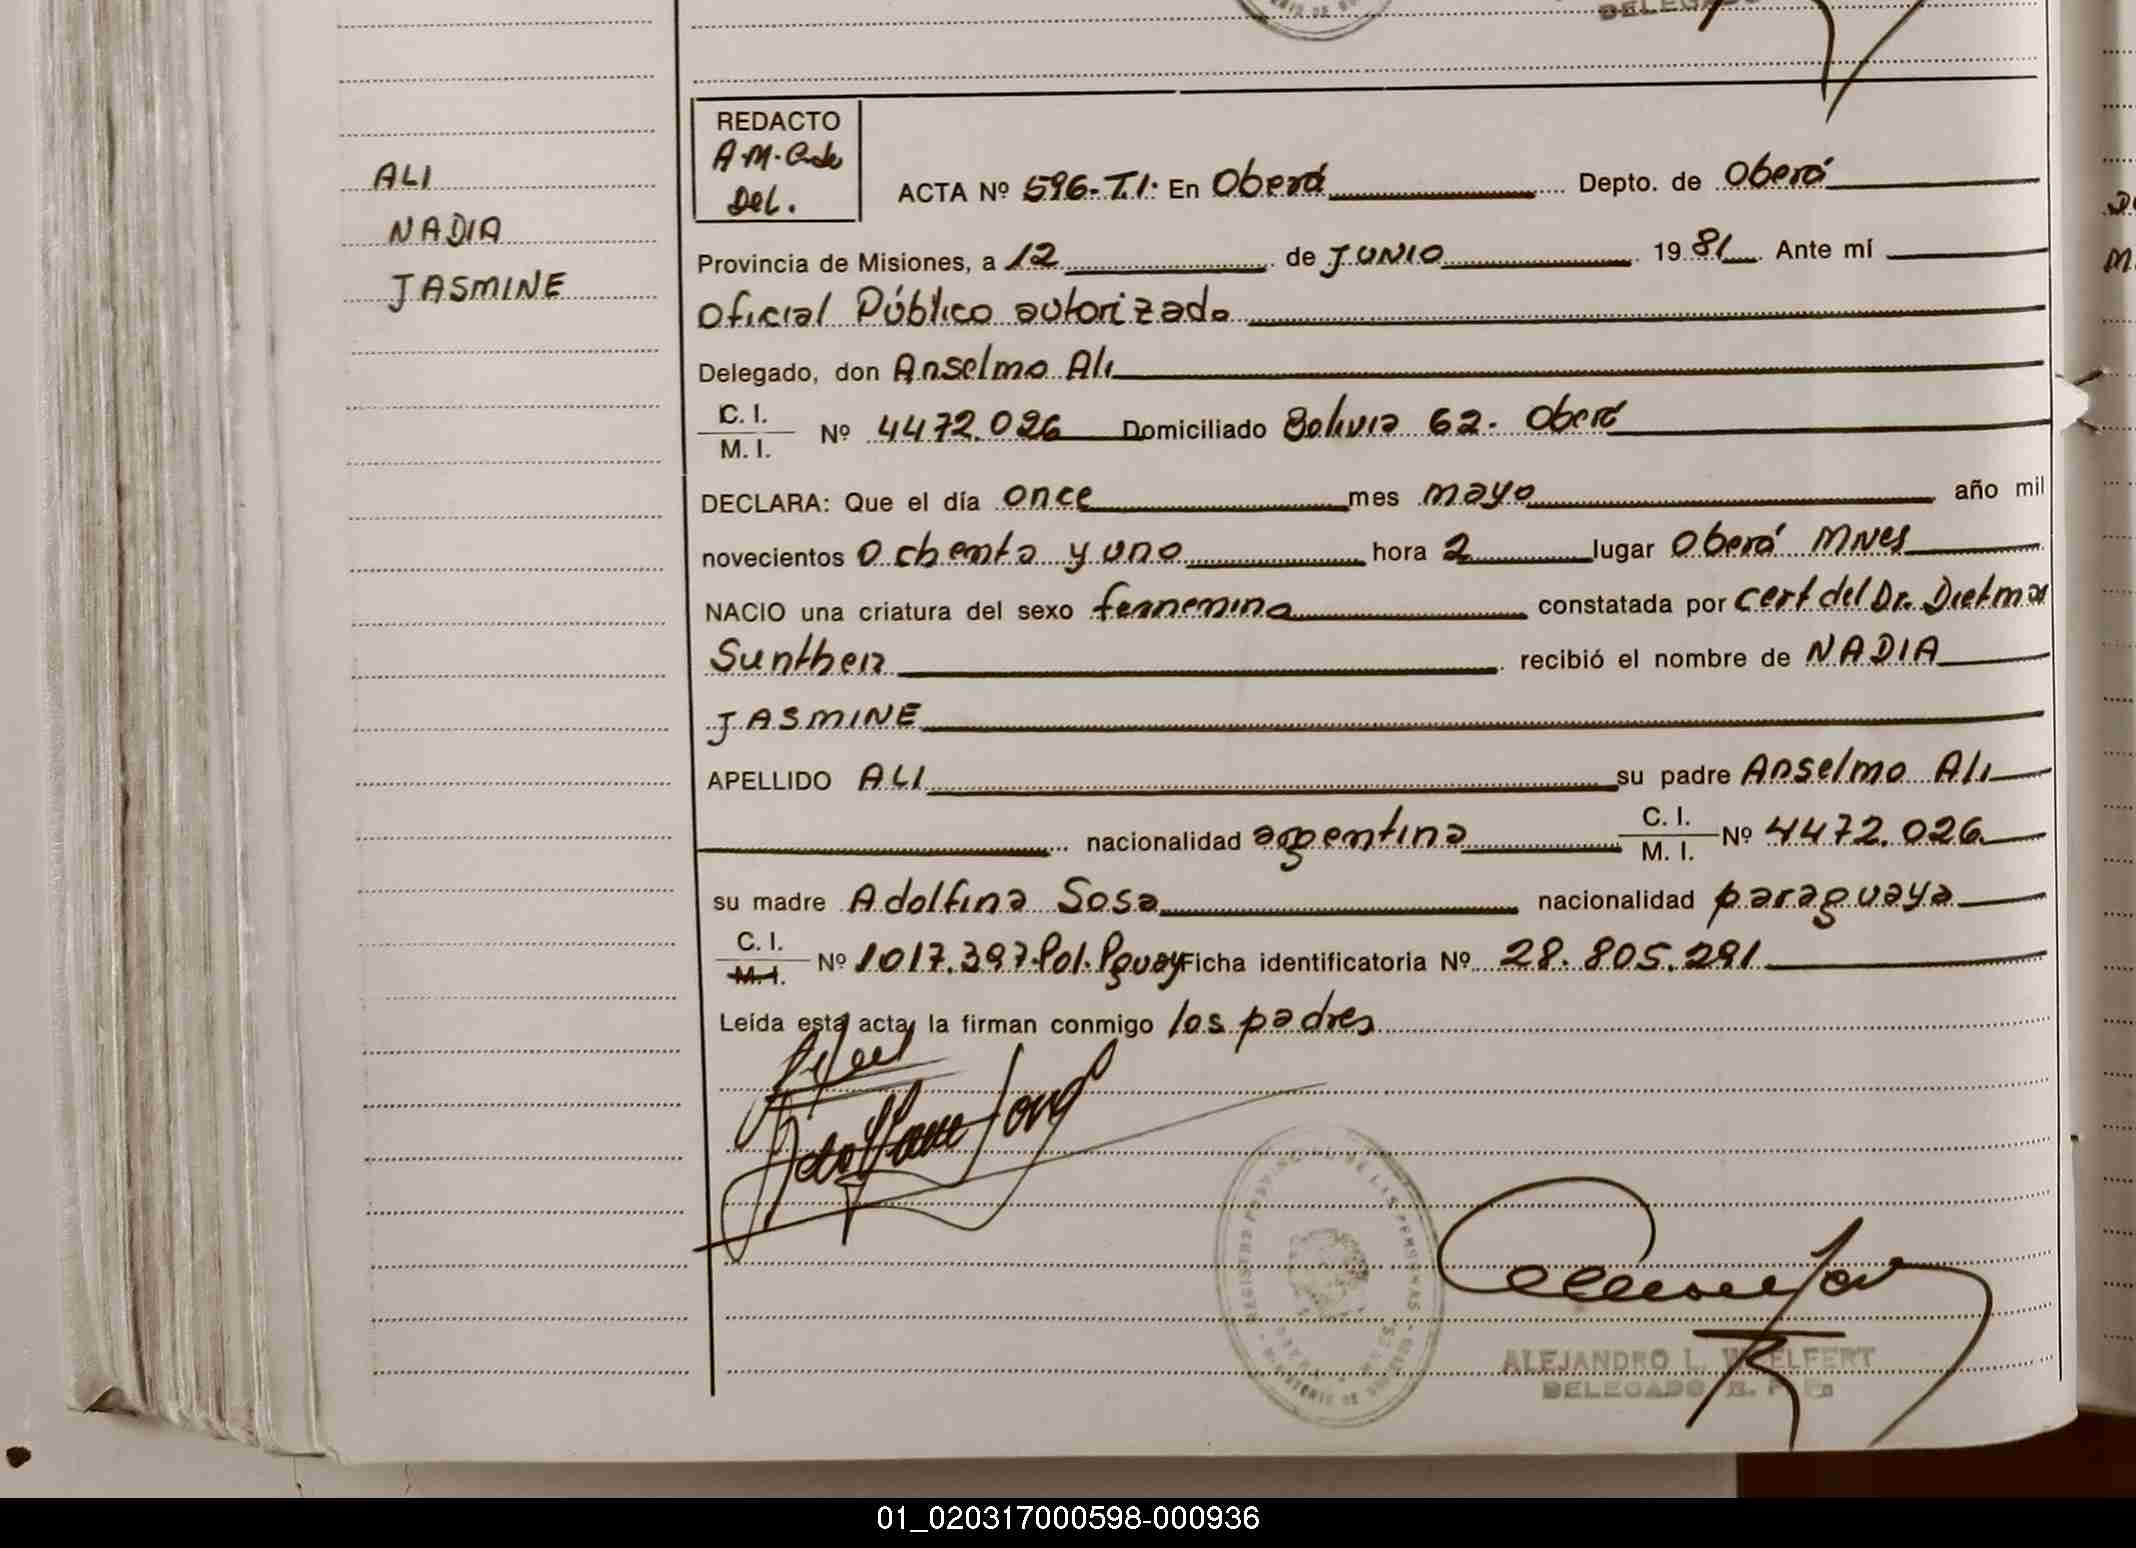 DELEGADO
REDACTO
A.M.
Del.
ALI
NADIA
JASMINE
ACTA Nº 596-T.I. En Oberá Depto. de Oberá
Provincia de Misiones, a 12 de JUNIO 1981 Ante mí
Oficial Público autorizado
Delegado, don Anselmo Ali
C. I.
M. I. Nº 4472.026 Domiciliado Bolivia 62. Oberá
DECLARA: Que el día once mes mayo año mil
novecientos ochenta y uno hora 2 lugar Oberá Mnes
NACIO una criatura del sexo femenino constatada por cert del Dr. Dietmar
Sunther recibió el nombre de NADIA
JASMINE
APELLIDO ALI su padre Anselmo Ali
nacionalidad argentina C. I.
M. I. Nº 4472.026
su madre Adolfina Sosa nacionalidad paraguaya
C. I.
M. I. Nº 1017.397 Pol. Pguay Ficha identificatoria Nº 28.805.291
Leída esta acta, la firman conmigo los padres
REGISTRO PROVINCIAL DE LAS PERSONAS
ALEJANDRO L. WELFERT
DELEGADO R. P. P.
01_020317000598-000936